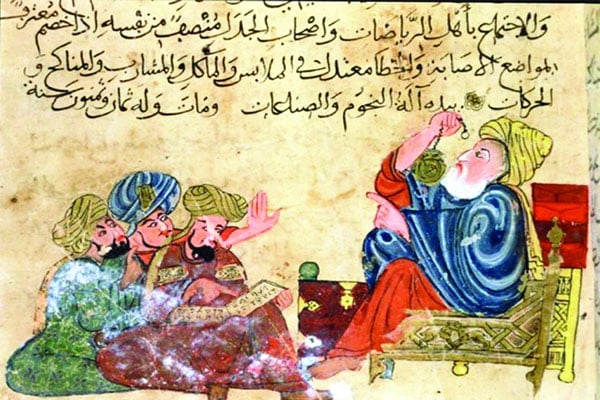 والاجتماع بأهل الرياضات واصحاب الجدل منصف من نفسه اذا خصم معترف
بمواضع الاصابة والخطا معتدلٌ في الملابس والمآكل والمشارب والمناكح و
الحركات بيده آلة النجوم والصناعات ومات وله ثمان وثمنون سنة